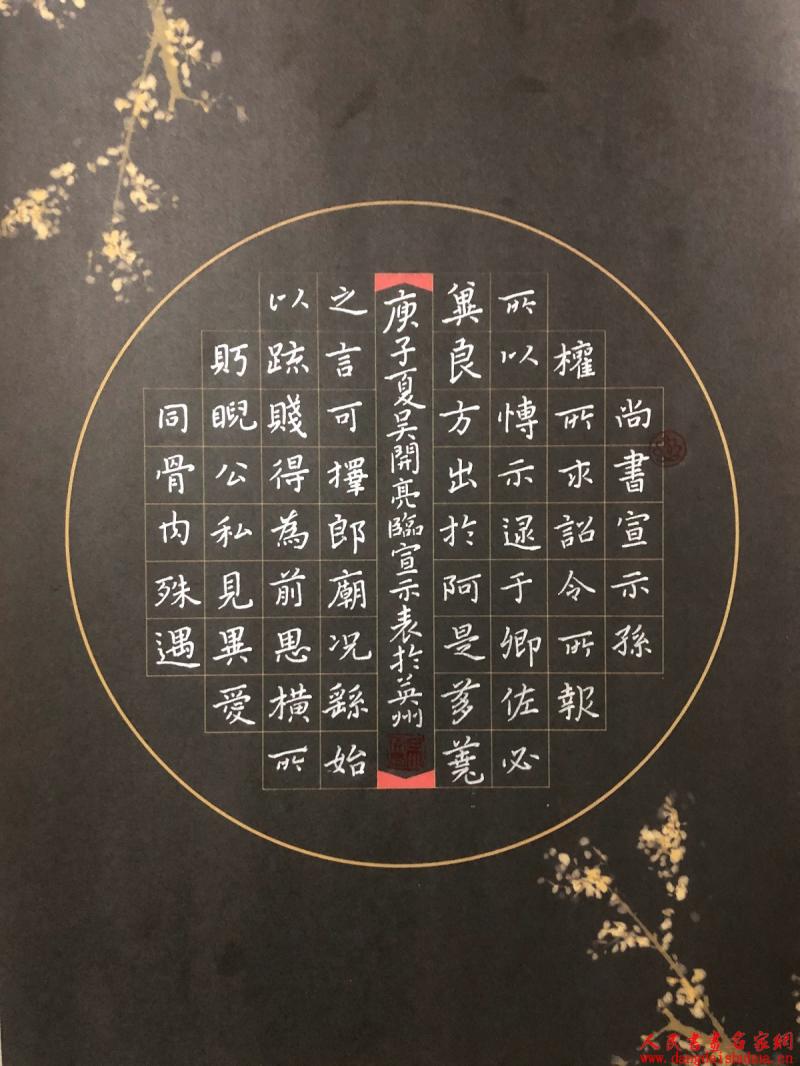 尚書宣示孫
權所求詔令所報
所以愽示逯于卿佐必
兾良方出於阿是芻蕘
庚子夏吴開亮臨宣示表於英州
之言可擇郎廟况繇始
以踈賤得為前恩橫所
盻睨公私見異愛
同骨肉殊遇
人民書畫名家網
www.dangdaishuhua.cn